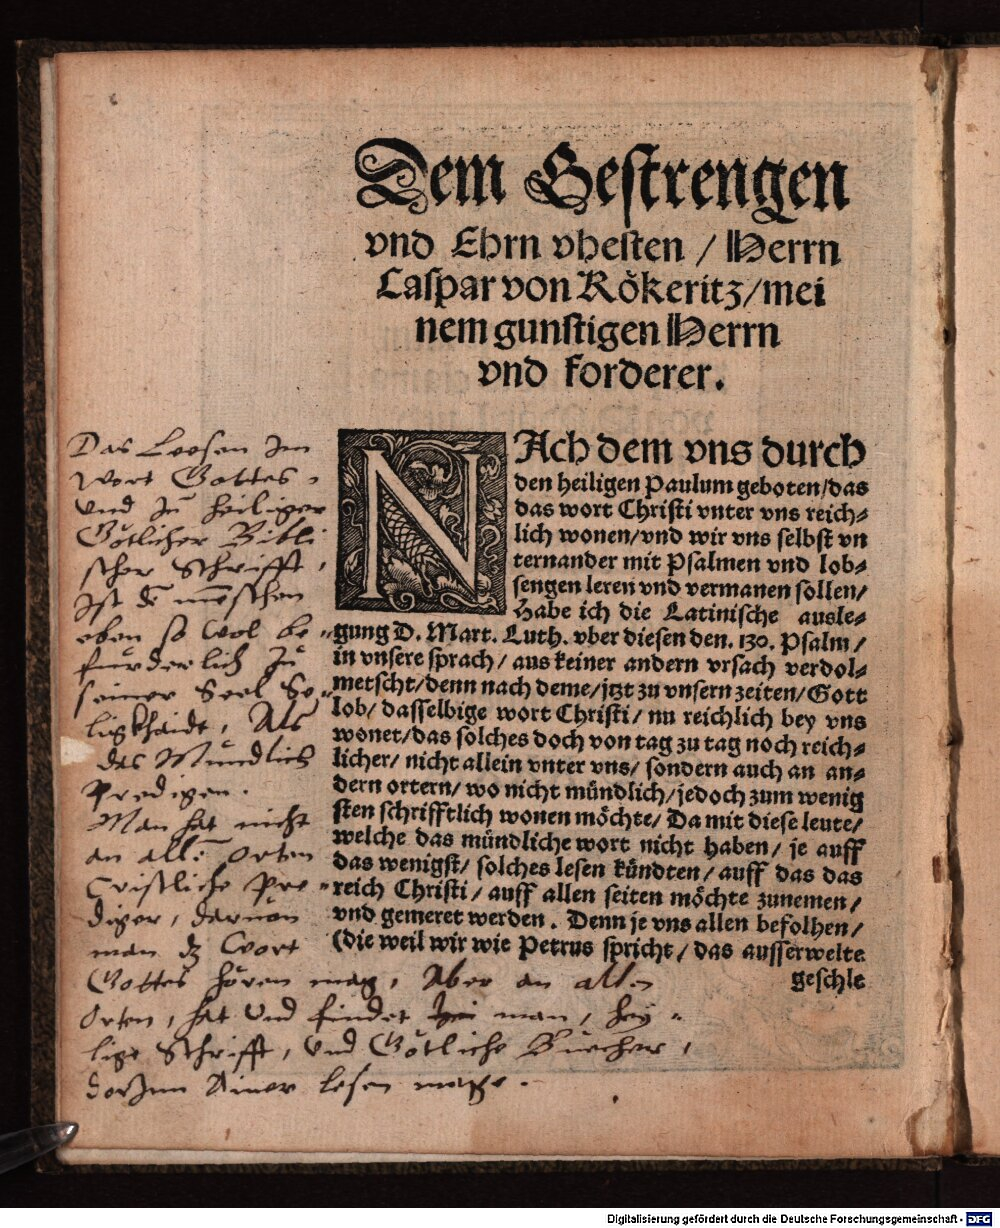 Dem Gestrengen
vnd Ehrn vhesten / Herrn
Caspar von Kökeritz/mei
nem gunstigen Herrn
vnd forderer.
NAch dem vns durch
den heiligen Paulum geboten/das
das wort Christi vnter vns reich⸗
lich wonen/vnd wir vns selbst vn
ternander mit Psalmen vnd lob⸗
sengen leren vnd vermanen sollen/
Habe ich die Latinische ausle⸗
gung D. Mart. Luth. vber diesen den. 130. Psalm/
in vnsere sprach/ aus keiner andern vrsach verdol⸗
metscht/denn nach deme/jtzt zu vnsern zeiten/Gott
lob/ dasselbige wort Christi/ nu reichlich bey vns
wonet/das solches doch von tag zu tag noch reich⸗
licher/ nicht allein vnter vns/ sondern auch an an⸗
dern ortern/ wo nicht mündlich/jedoch zum wenig
sten schrifftlich wonen möchte/ Da mit diese leute/
welche das mündliche wort nicht haben/ je auff
das wenigst/ solches lesen kündten/ auff das das
reich Christi/ auff allen seiten möchte zunemen/
vnd gemeret werden. Denn je vns allen befolhen/
(die weil wir wie Petrus spricht/ das ausserwelte
geschle
Das Leesen Im
Wort Gottes,
Vnd Jn heiliger
Götlicher Bibli
scher Schrifft,
Ist de menschen
eben so wol be⸗
furderlich zu
seiner Seel Se⸗
ligkhaidt, Als
das Mundlich
Predigen.
Man hat nicht
an alle Orten
Cristliche Pre⸗
diger, daruon
man dz Wort
Gottes hören mag, Aber an allen
Orten, hat vnd findet man, hey⸗
lige Schrifft, Vnd Götliche Buecher,
dorJnn Ainer lesen mag.
Digitalisierung gefördert durch die Deutsche Forschungsgemeinschaft - DFG